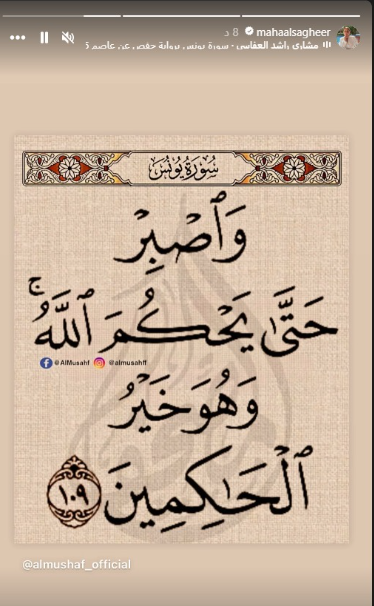 mahaalsagheer 8 د
مشاري راشد العفاسي · سورة يونس برواية حفص عن عاصم
سُورَةُ يُونُسَ
وَٱصۡبِرۡ
حَتَّىٰ يَحۡكُمَ ٱللَّهُۚ
@AlMusahf @almusahff
وَهُوَ خَيۡرُ
ٱلۡحَٰكِمِينَ ١٠٩
@almushaf_official